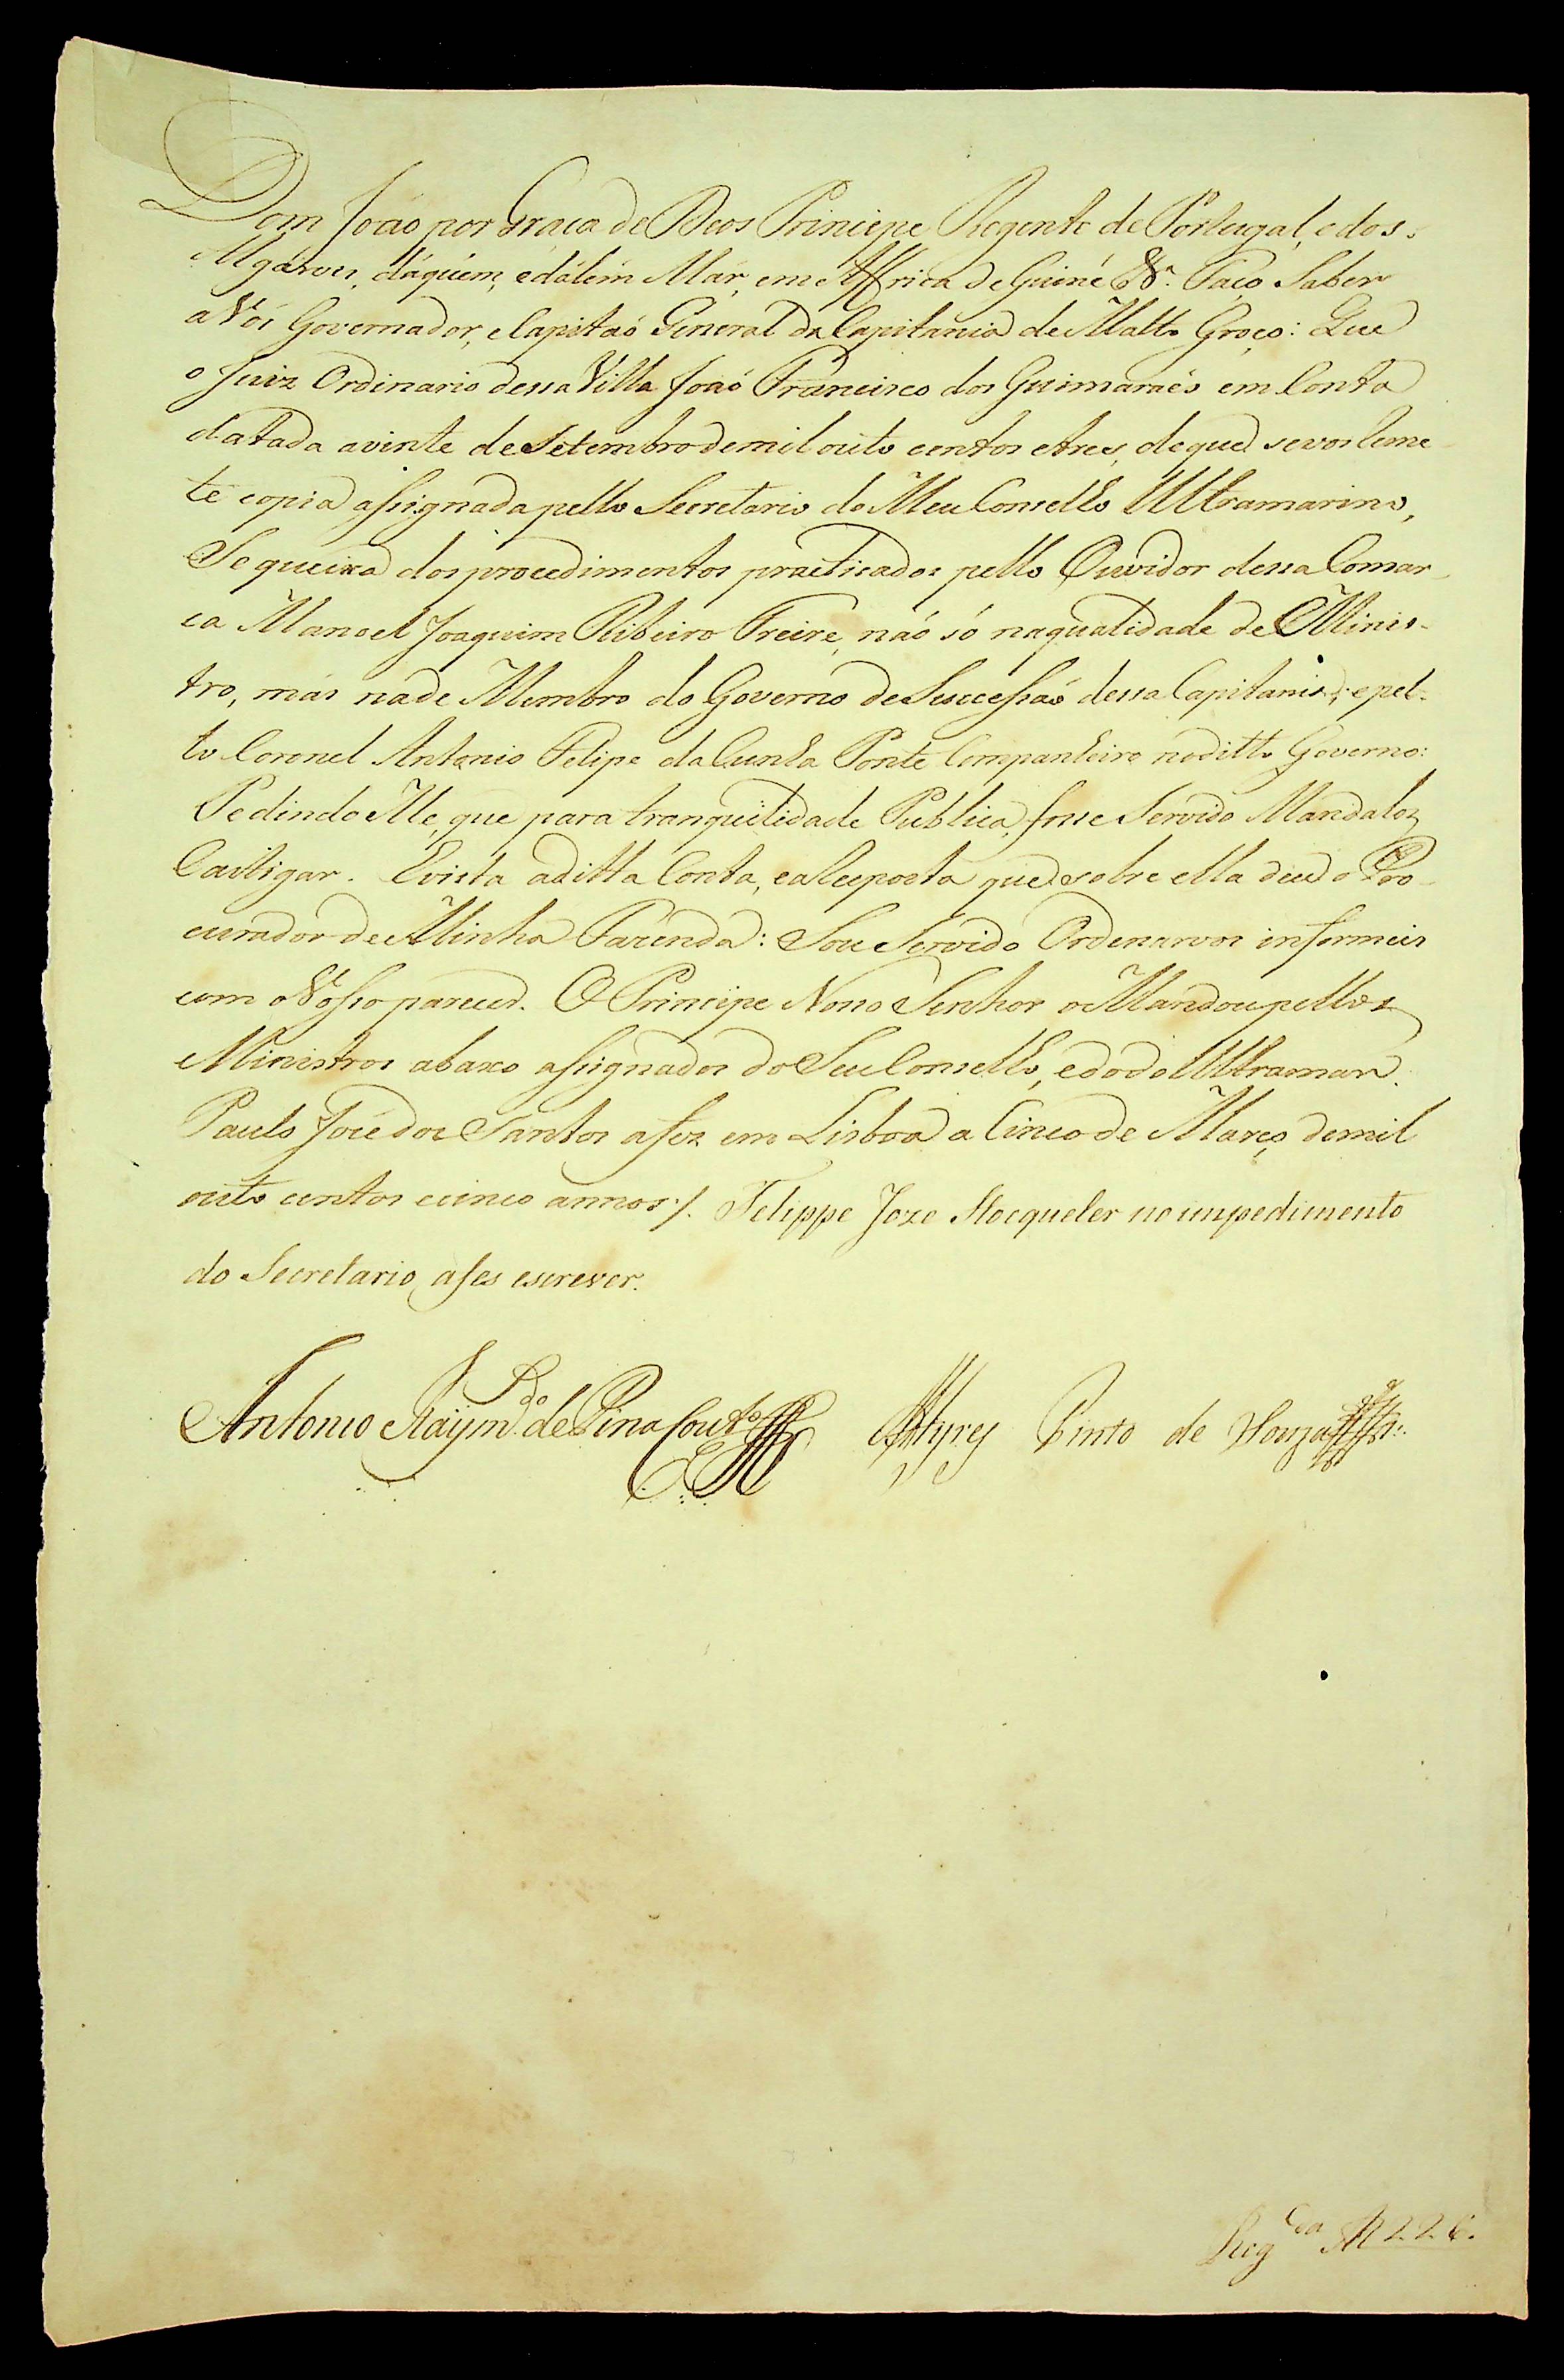 Dom João por Graça de Deos Principe Regente de Portugal, e dos
Algarves, dáquem, e dálem Már, em Affrica de Guiné &ª. Faço Saber
a Vós Governador, e Capitaó General da Capitania de Matto Groço: Que
o Juiz Ordinario dessa Villa Joaó Francisco dos Guimaraẽs em Conta
datada a vinte de Setembro de mil outo centos e tres, de que se vos Reme
te copia assignada pello Secretario do Meu Conselho Ultramarino,
Se queixa dos procedimentos practicados pello Ouvidor dessa Comar
ca Manoel Joaquim Ribeiro Freire, náo só na qualidade de Minis-
tro, más na de Membro do Governo de Sucessaó dessa Capitania; e pel-
lo Coronel Antonio Felipe da Cunha Ponte Companheiro no ditto Governo:
Pedindo Me, que para tranquilidade Publica, fosse Servido Mandalos
Castigar. E vista a ditta Conta, e a Resposta que sobre ella deu o Pro-
curador de Minha Fazenda: Sou Servido Ordenarvos informeis
com o Vosso parecer. O Principe Nosso Senhor o Mandou pellos
Ministros abaxo assignados do Seu Conselho, e do do Ultramar.
Paulo José dos Santos a fez em Lisboa a Cinco de Março de mil
outo centos e cinco annos /. Felippe Joze Stocqueler no impedimento
do Secretario, a fes escrever.
Antonio Raym.do de Pina Cout.º Ayres Pinto de Souza
Reg.da A 226.